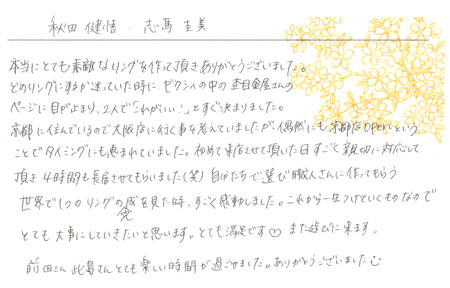 秋田 健悟・志馬 圭美
本当にとても素敵なリングを作って頂きありがとうございました。
どのリングにするか迷っていた時にゼクシィの中の杢目金屋さんの
ページに目がとまり、2人で「これがいい!」とすぐ決まりました。
京都に住んでいるので大阪店に行く事を考えていましたが偶然にも京都店OPENという
ことでタイミングにも恵まれていました。初めて来店させて頂いた日すごく親切に対応して
頂き4時間も長居させてもらいました(笑)自分たちで選び職人さんに作ってもらう
世界で1つのリングの完成を見た時、すごく感動しました。これから一生つけていくものなので
とても大事にしていきたいと思います。とても満足です♡ また遊びに来ます。
前田さん 比島さんとても楽しい時間が過ごせました。ありがとうございました